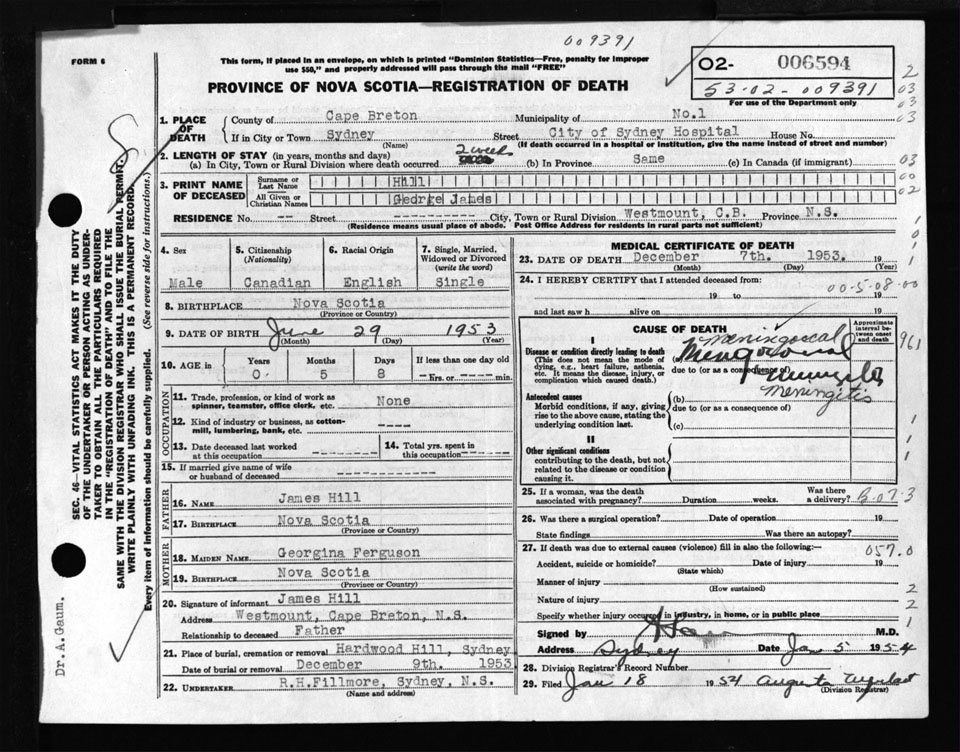 009391
FORM 6
This form, if placed in an envelope, on which is printed "Dominion Statistics—Free, penalty for improper
use $50," and properly addressed will pass through the mail "FREE"
02- 006594
53-02-009391
For use of the Department only
PROVINCE OF NOVA SCOTIA—REGISTRATION OF DEATH
1. PLACE OF DEATH County of Cape Breton Municipality of No.1
If in City or Town Sydney Street City of Sydney Hospital House No.
(Name) (If death occurred in a hospital or institution, give the name instead of street and number)
2. LENGTH OF STAY (in years, months and days)
(a) In City, Town or Rural Division where death occurred 2 weeks (b) In Province Same (c) In Canada (if immigrant)
3. PRINT NAME OF DECEASED
Surname or Last Name Hill
All Given or Christian Names George James
RESIDENCE No. -- Street ---------- City, Town or Rural Division Westmount, C.B. Province N.S.
(Residence means usual place of abode. Post Office Address for residents in rural parts not sufficient)
4. Sex Male
5. Citizenship (Nationality) Canadian
6. Racial Origin English
7. Single, Married, Widowed or Divorced (write the word) Single
8. BIRTHPLACE Nova Scotia
(Province or Country)
9. DATE OF BIRTH June 29 1953
(Month) (Day) (Year)
10. AGE in Years Months Days If less than one day old
0. 5 8 Hrs. or min.
OCCUPATION
11. Trade, profession, or kind of work as spinner, teamster, office clerk, etc. None
12. Kind of industry or business, as cotton-mill, lumbering, bank, etc. ----
13. Date deceased last worked at this occupation
14. Total yrs. spent in this occupation
15. If married give name of wife or husband of deceased
FATHER
16. NAME James Hill
17. BIRTHPLACE Nova Scotia
(Province or Country)
MOTHER
18. MAIDEN NAME Georgina Ferguson
19. BIRTHPLACE Nova Scotia
(Province or Country)
20. Signature of informant James Hill
Address Westmount, Cape Breton, N.S.
Relationship to deceased Father
21. Place of burial, cremation or removal Hardwood Hill, Sydney
Date of burial or removal December 9th. 1953
22. UNDERTAKER R.H.Fillmore, Sydney, N.S.
(Name and address)
MEDICAL CERTIFICATE OF DEATH
23. DATE OF DEATH December 7th. 1953. 19
(Month) (Day) (Year)
24. I HEREBY CERTIFY that I attended deceased from:
19 to 19
00-5-08-00
and last saw h alive on 19
CAUSE OF DEATH
Approximate interval between onset and death
I
Disease or condition directly leading to death
(This does not mean the mode of dying, e.g., heart failure, asthenia, etc. It means the disease, injury, or complication which caused death.)
meningococcal
due to (or as a consequence of)
Antecedent causes
Morbid conditions, if any, giving rise to the above cause, stating the underlying condition last.
(b) meningitis
due to (or as a consequence of)
(c)
II
Other significant conditions
contributing to the death, but not related to the disease or condition causing it.
25. If a woman, was the death associated with pregnancy? Duration weeks. Was there a delivery? B-07-3
26. Was there a surgical operation? Date of operation 19
State findings Was there an autopsy?
27. If death was due to external causes (violence) fill in also the following:— 057.0
Accident, suicide or homicide? Date of injury 19
(State which)
Manner of injury
(How sustained)
Nature of injury
Specify whether injury occurred in industry, in home, or in public place
Signed by M.D.
Address Sydney Date Jan 5 1954
28. Division Registrar's Record Number
29. Filed Jan 18 1954 Augusta
(Division Registrar)
SEC. 46—VITAL STATISTICS ACT MAKES IT THE DUTY
OF THE UNDERTAKER OR PERSON ACTING AS UNDER-
TAKER TO OBTAIN ALL THE PARTICULARS REQUIRED
IN THE "REGISTRATION OF DEATH" AND TO FILE THE
SAME WITH THE DIVISION REGISTRAR WHO SHALL ISSUE THE BURIAL PERMIT.
WRITE PLAINLY WITH UNFADING INK. THIS IS A PERMANENT RECORD.
Every item of information should be carefully supplied. (See reverse side for instructions.)
Dr. A. Gaum.
2
03
03
03
03
00
02
1
0
1
1
961
1
1
1
2
2
1